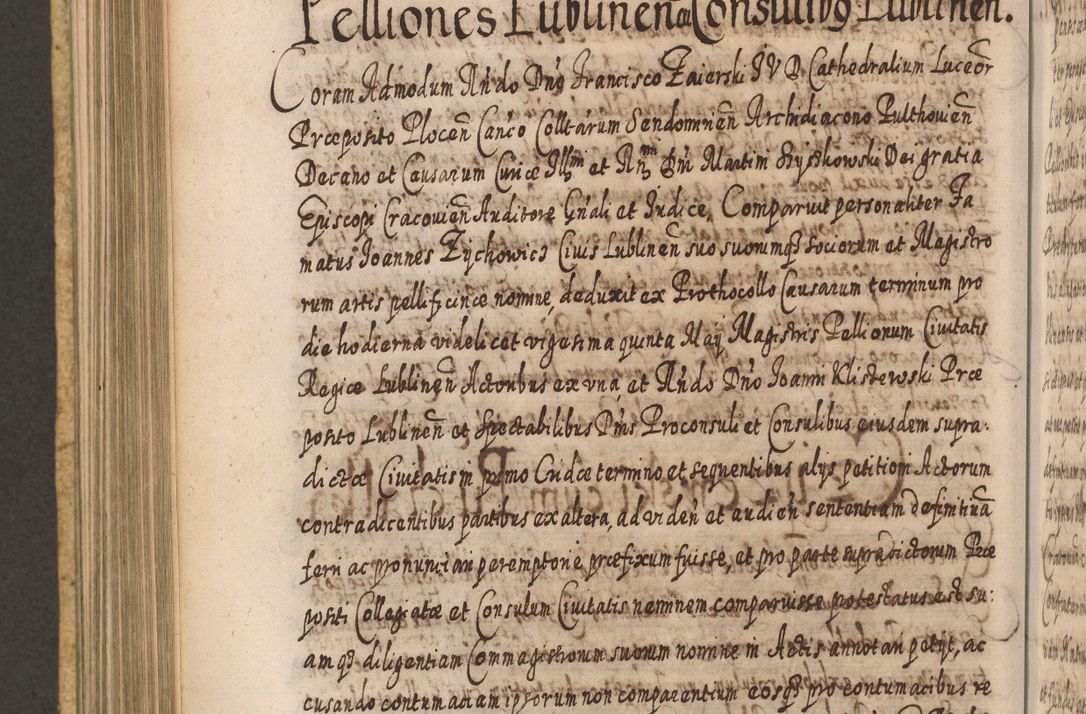 Pelliones Lublinen̄ a Consulibꝰ Lublinen.
Coram Admodum Rñdo Dnō Francisco Zaierski I V D Cathedralium Luceor̄
Præposito Plocen̄ Canco Colltarum Sendomirien̄ Archidiacono Pulthouien̄
Decano et Causarum Curiæ Illm̄ et Rn̄ Dnī Martini Szyszkowski Dei gratia
Episcopi Cracouien̄ Auditore Gn̄ali et Iudice, Comparuit personaliter Fa
matus Ioannes Zychowicz Ciuis Lublinen̄ suo suorumqꝫ sociorum et Magistro
rum artis pellificinæ nomine, deduxit ex Prothocollo Causarum terminum pro
die hodierna videlicet vigesima quinta Maij Magistris Pellionum Ciuitatis
Regiæ Lublinen̄ Actoribus ex vna, et Rñdo Dn̄o Ioanni Klistewski Præ
posito Lublinen̄ et Spectabilibus Dn̄is Proconsuli et Consulibus eiusdem supra:
dictæ Ciuitatis in primo Cridæ termino et sequentibus alijs petitioni Actorum
contradicentibus partibus ex altera, ad viden̄ et audien̄ sententiam definitiuā
ferri ac pronunciari peremptorie præfixum fuisse, et pro parte supradictorum Præ
positi Collegiatæ et Consulum Ciuitatis neminem comparuisse protestatus est su:
am qꝫ diligentiam Commagistrorum suorum nomine in Actis annotari petijt, ac
cusando contumaciam ipsorum non comparentium eosqꝫ pro contumacibus re